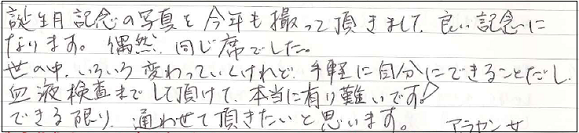 誕生月記念の写真を今年も撮って頂きまして、良い記念に
なります。偶然、同じ席でした。
世の中、いろいろ変わっていくけれど、手軽に自分にできることだし、
血液検査までして頂けて、本当に有り難いです!
できる限り、通わせて頂きたいと思います。 アラセンサ